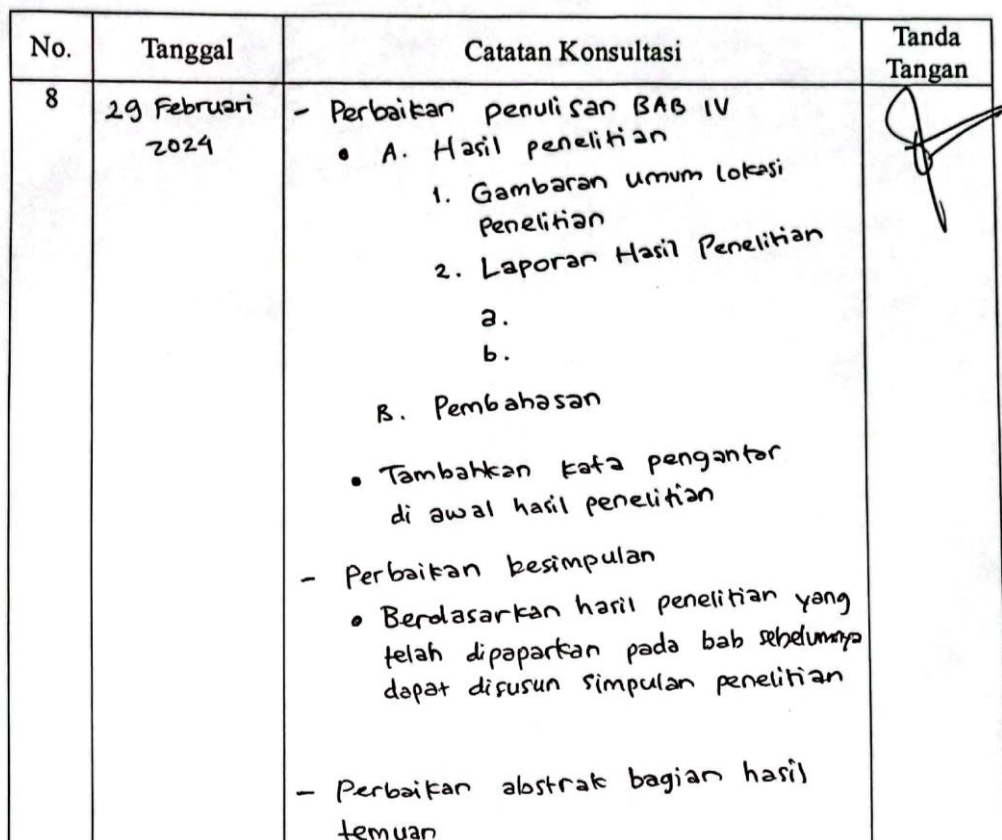 No. Tanggal Catatan Konsultasi Tanda Tangan
8 29 Februari 2024
- Perbaikan penulisan BAB IV
• A. Hasil penelitian
1. Gambaran umum lokasi
Penelitian
2. Laporan Hasil Penelitian
a.
b.
B. Pembahasan
• Tambahkan kata pengantar
di awal hasil penelitian
- Perbaikan kesimpulan
• Berdasarkan hasil penelitian yang
telah dipaparkan pada bab sebelumnya
dapat disusun simpulan penelitian
- Perbaikan abstrak bagian hasil
temuan